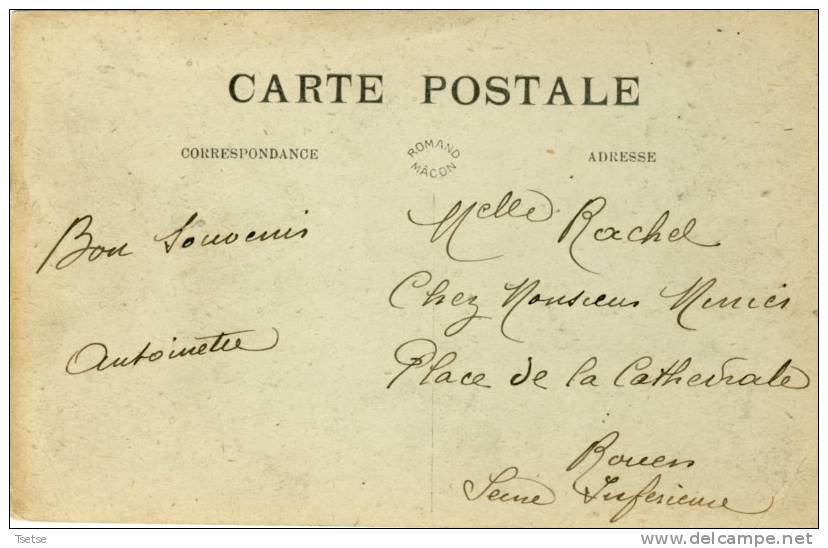 CARTE POSTALE
CORRESPONDANCE
ROMAND
MÂCON
ADRESSE
Bon Souvenir
Antoinette
Melle Rachel
Chez Monsieur
Place de la Cathedrale
Rouen
Seine Inferieure
Tsetse
www.delcampe.net